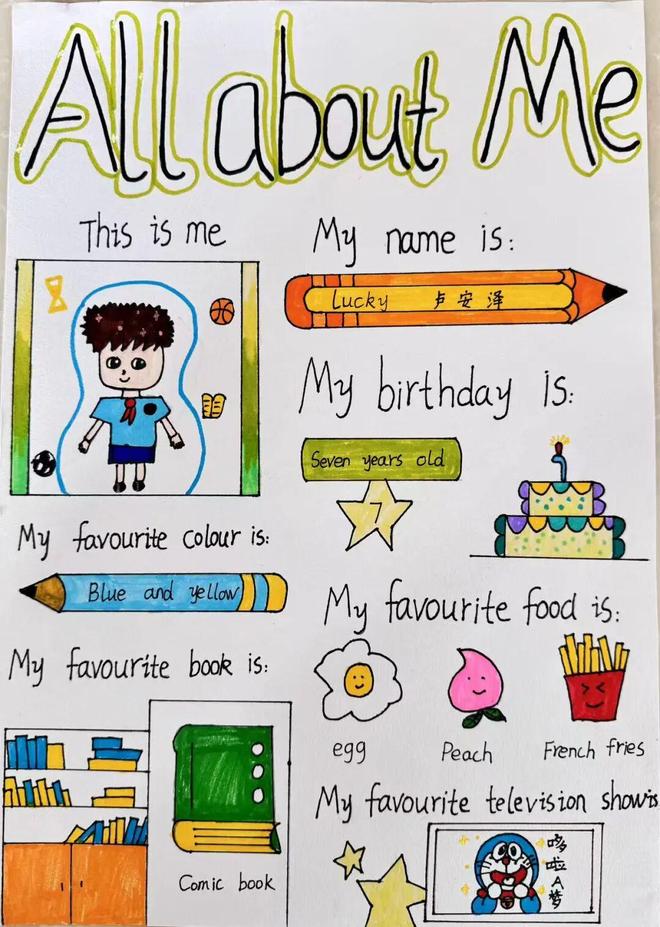 All about Me
This is me
My name is:
Lucky 卢安泽
My birthday is:
Seven years old
7
My favourite colour is:
Blue and yellow
My favourite food is:
egg
Peach
French fries
My favourite book is:
Comic book
My favourite television show is
哆
啦
A
梦